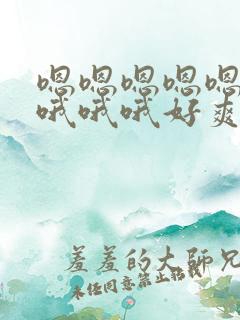 嗯嗯嗯嗯嗯
哦哦哦好爽
羞羞的大師兄
未经同意禁止转载